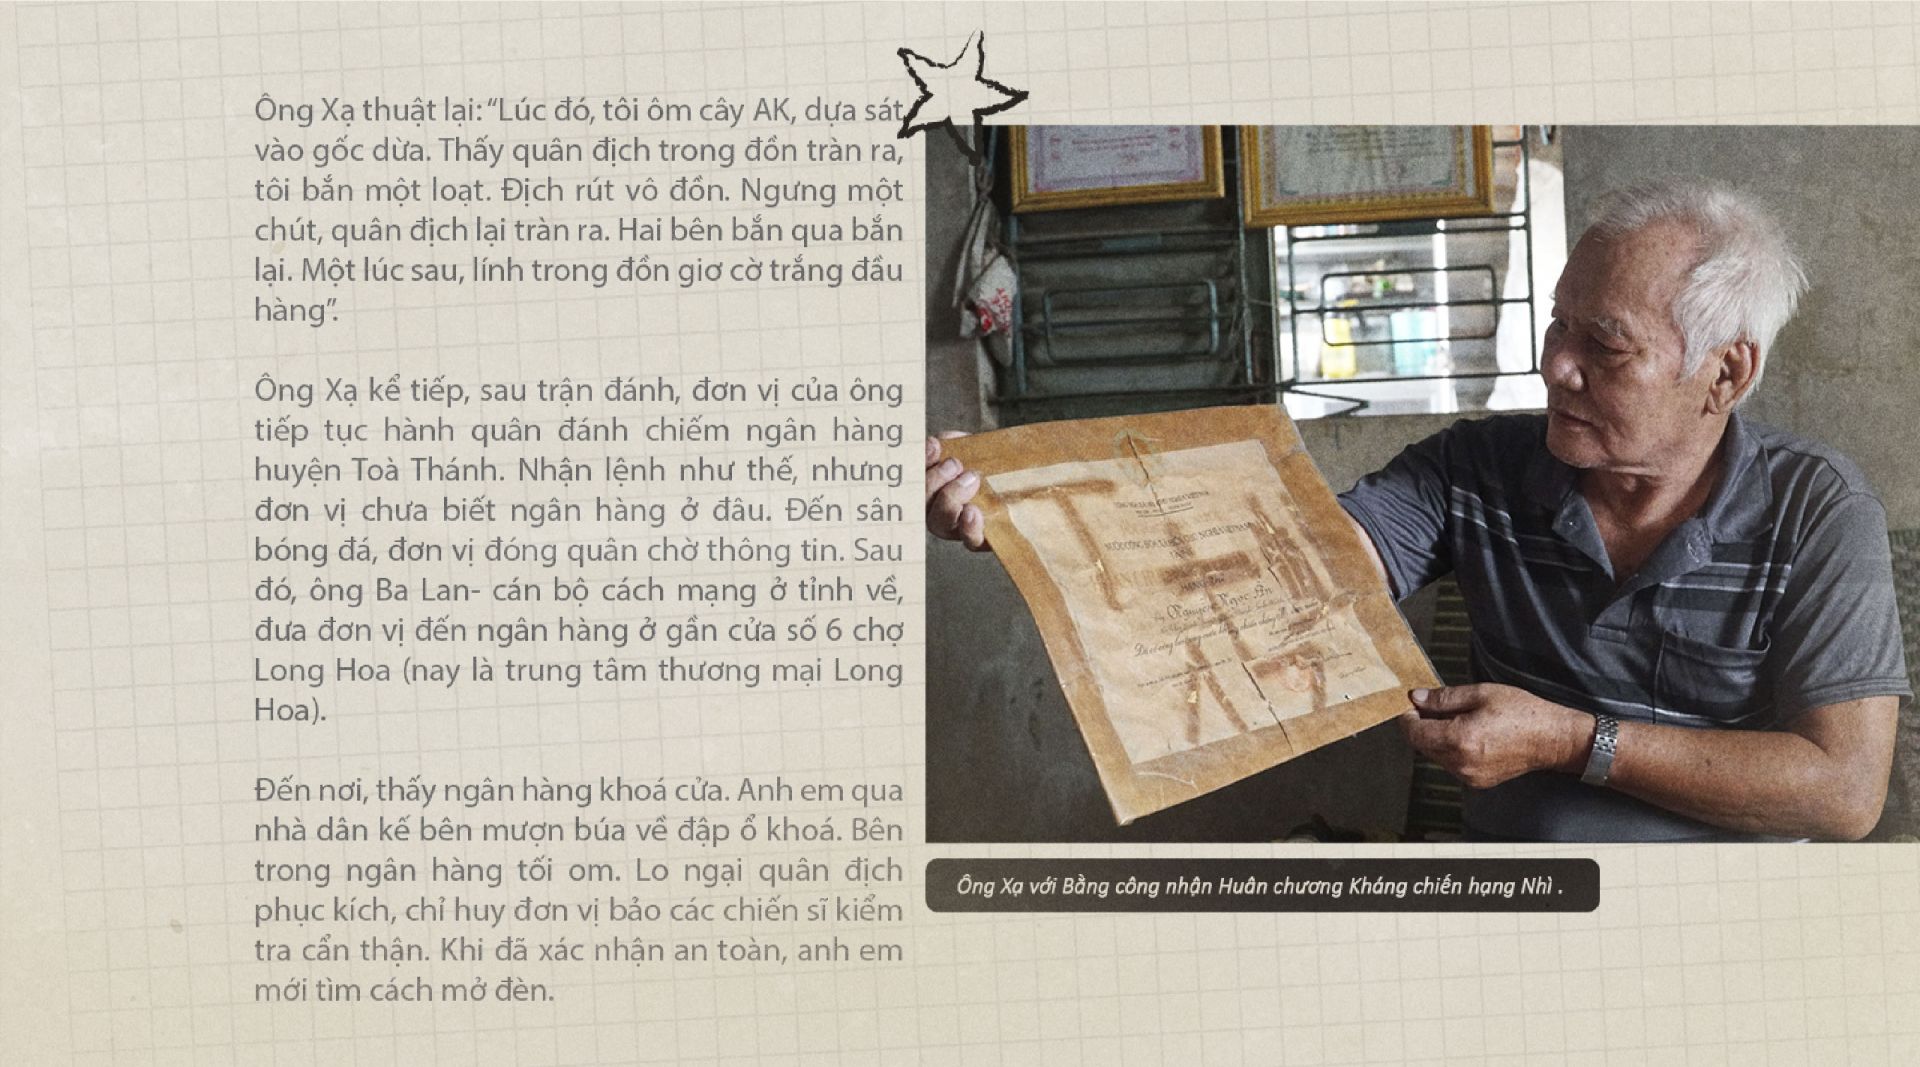 Ông Xạ thuật lại: “Lúc đó, tôi ôm cây AK, dựa sát
vào gốc dừa. Thấy quân địch trong đồn tràn ra,
tôi bắn một loạt. Địch rút vô đồn. Ngưng một
chút, quân địch lại tràn ra. Hai bên bắn qua bắn
lại. Một lúc sau, lính trong đồn giơ cờ trắng đầu
hàng”.
Ông Xạ kể tiếp, sau trận đánh, đơn vị của ông
tiếp tục hành quân đánh chiếm ngân hàng
huyện Toà Thánh. Nhận lệnh như thế, nhưng
đơn vị chưa biết ngân hàng ở đâu. Đến sân
bóng đá, đơn vị đóng quân chờ thông tin. Sau
đó, ông Ba Lan- cán bộ cách mạng ở tỉnh về,
đưa đơn vị đến ngân hàng ở gần cửa số 6 chợ
Long Hoa (nay là trung tâm thương mại Long
Hoa).
Đến nơi, thấy ngân hàng khoá cửa. Anh em qua
nhà dân kế bên mượn búa về đập ổ khoá. Bên
trong ngân hàng tối om. Lo ngại quân địch
phục kích, chỉ huy đơn vị bảo các chiến sĩ kiểm
tra cẩn thận. Khi đã xác nhận an toàn, anh em
mới tìm cách mở đèn.
Ông Xạ với Bằng công nhận Huân chương Kháng chiến hạng Nhì .